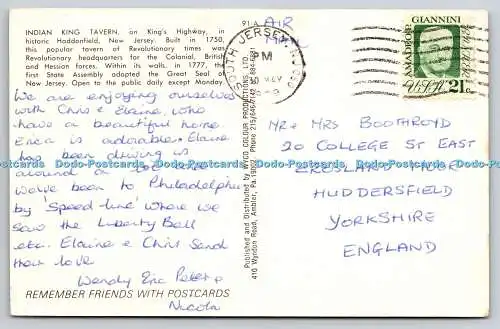 INDIAN KING TAVERN, on King's Highway, in
historic Haddonfield, New Jersey. Built in 1750,
this popular tavern of Revolutionary times was
Revolutionary headquarters for the Colonial, British
and Hessian forces. Within its walls, in 1777, the
first State Assembly adopted the Great Seal of
New Jersey. Open to the public daily except Monday.
We are enjoying ourselves
with Chris & Elaine, who
have a beautiful home.
Erica is adorable. Elaine
has been driving us
around
We've been to Philadelphia
by 'Speed-line' where we
saw the Liberty Bell
etc. Elaine & Chris Send
their love
Wendy Eric Peter &
Nicola
REMEMBER FRIENDS WITH POSTCARDS
91-A
AIR
MAIL
Published and Distributed by WYCO COLOUR PRODUCTIONS, LTD.
416 Wyndon Road, Ambler, Pa.
SOUTH JERSEY, NJ
PM
AMADEO P. GIANNINI
USA 21c
MR & MRS BOOTHROYD
20 COLLEGE ST EAST
CROSLAND MOOR
HUDDERSFIELD
YORKSHIRE
ENGLAND
Dodo-Postcards Dodo-Postcards Dodo-Postcards Dodo-Postcards Dodo-Postcards